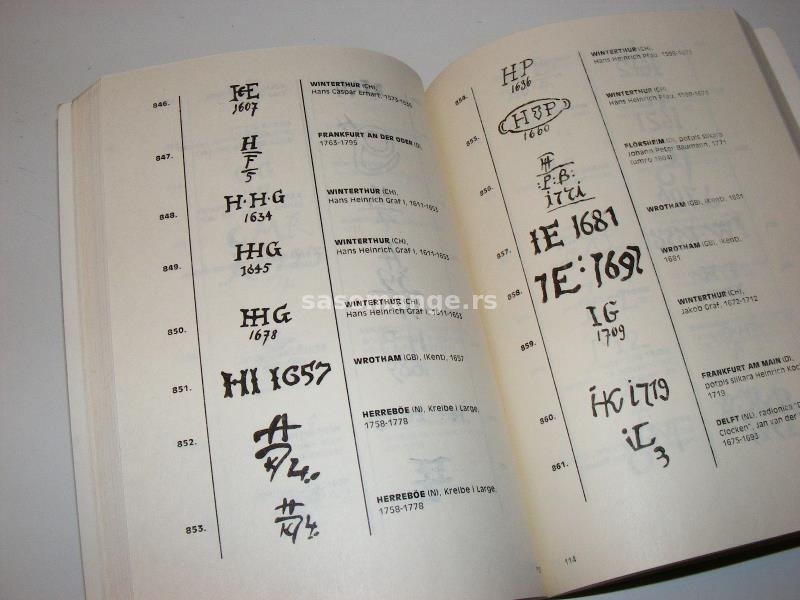 846.
HE
1607
WINTERTHUR (CH),
Hans Caspar Erhart, 1573-1656
847.
H
F
5
FRANKFURT AN DER ODER (D)
1763-1795
848.
H·H·G
1634
WINTERTHUR (CH),
Hans Heinrich Graf I, 1611-1653
849.
HHG
1645
WINTERTHUR (CH),
Hans Heinrich Graf I, 1611-1653
850.
HHG
1678
WINTERTHUR (CH),
Hans Heinrich Graf I, 1611-1653
851.
HI 1657
WROTHAM (GB), (Kent), 1657
852.
HERREBÖE (N), Kreibe i Large,
1758-1778
853.
HERREBÖE (N), Kreibe i Large,
1758-1778
854.
HP
1636
WINTERTHUR (CH),
Hans Heinrich Pfau, 1598-1673
855.
H P
1660
WINTERTHUR (CH),
Hans Heinrich Pfau, 1598-1673
856.
H
:P:B:
1771
FLÖRSHEIM (D), potpis slikara
Johann Peter Baumann, 1771
857.
IE 1681
WROTHAM (GB), (Kent), 1681
858.
IE:1697
WROTHAM (GB), (Kent),
1681
859.
IG
1709
WINTERTHUR (CH),
Jakob Graf, 1672-1712
860.
iHC i719
FRANKFURT AM MAIN (D),
potpis slikara Heinrich
1719
861.
iC
3
DELFT (NL), radionica
Clocken", Jan van der
1675-1693
114